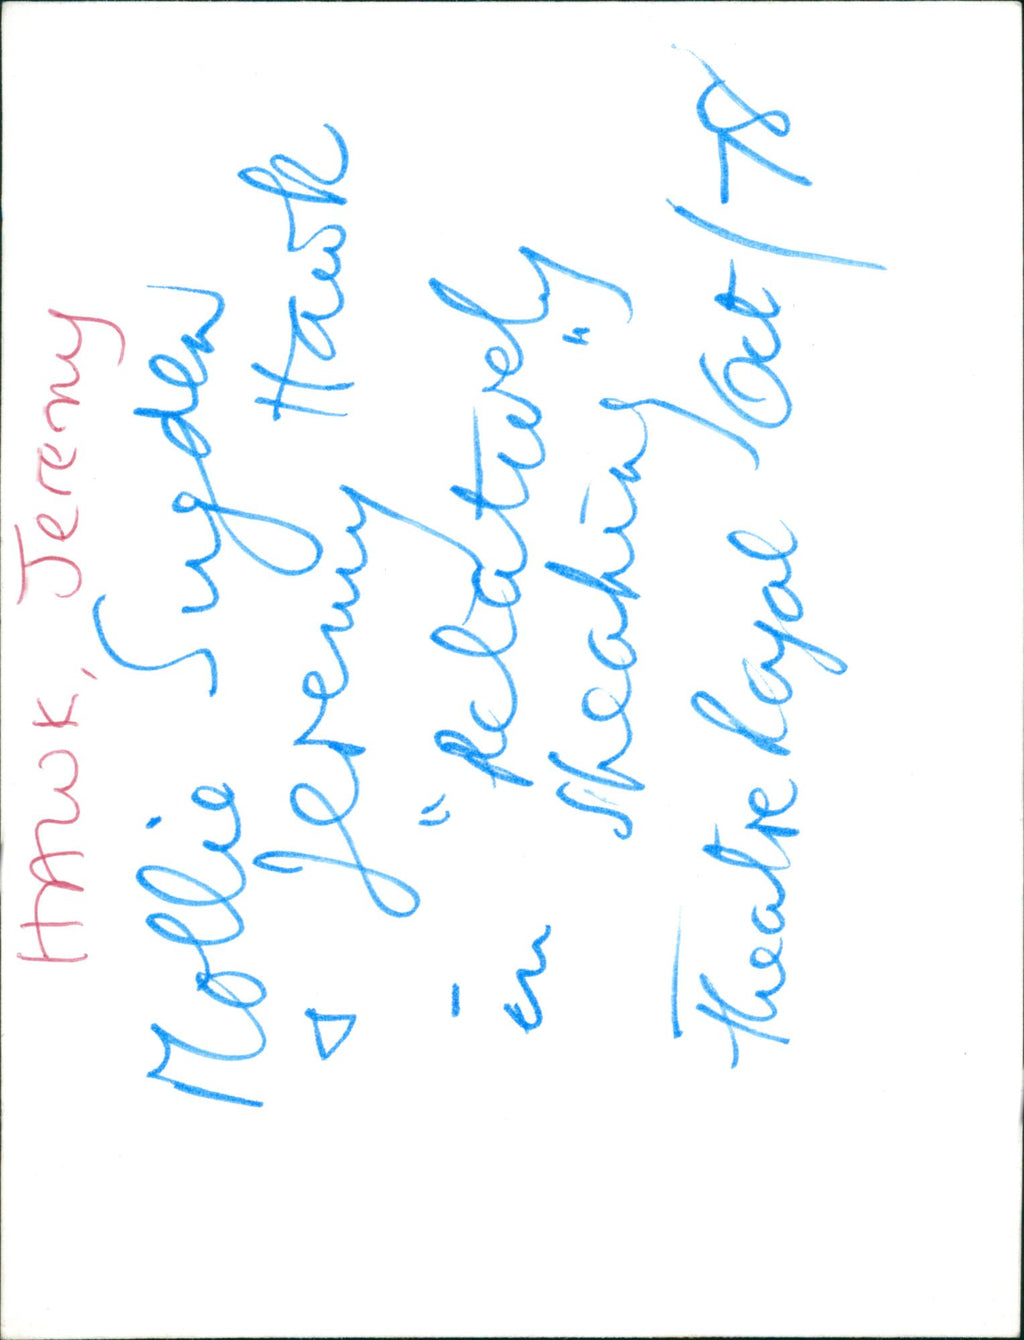 HAWK, Jeremy
Mollie Sugden
& Jeremy Hawk
in "Relatively
Speaking"
Theatre Royal / Oct / 78